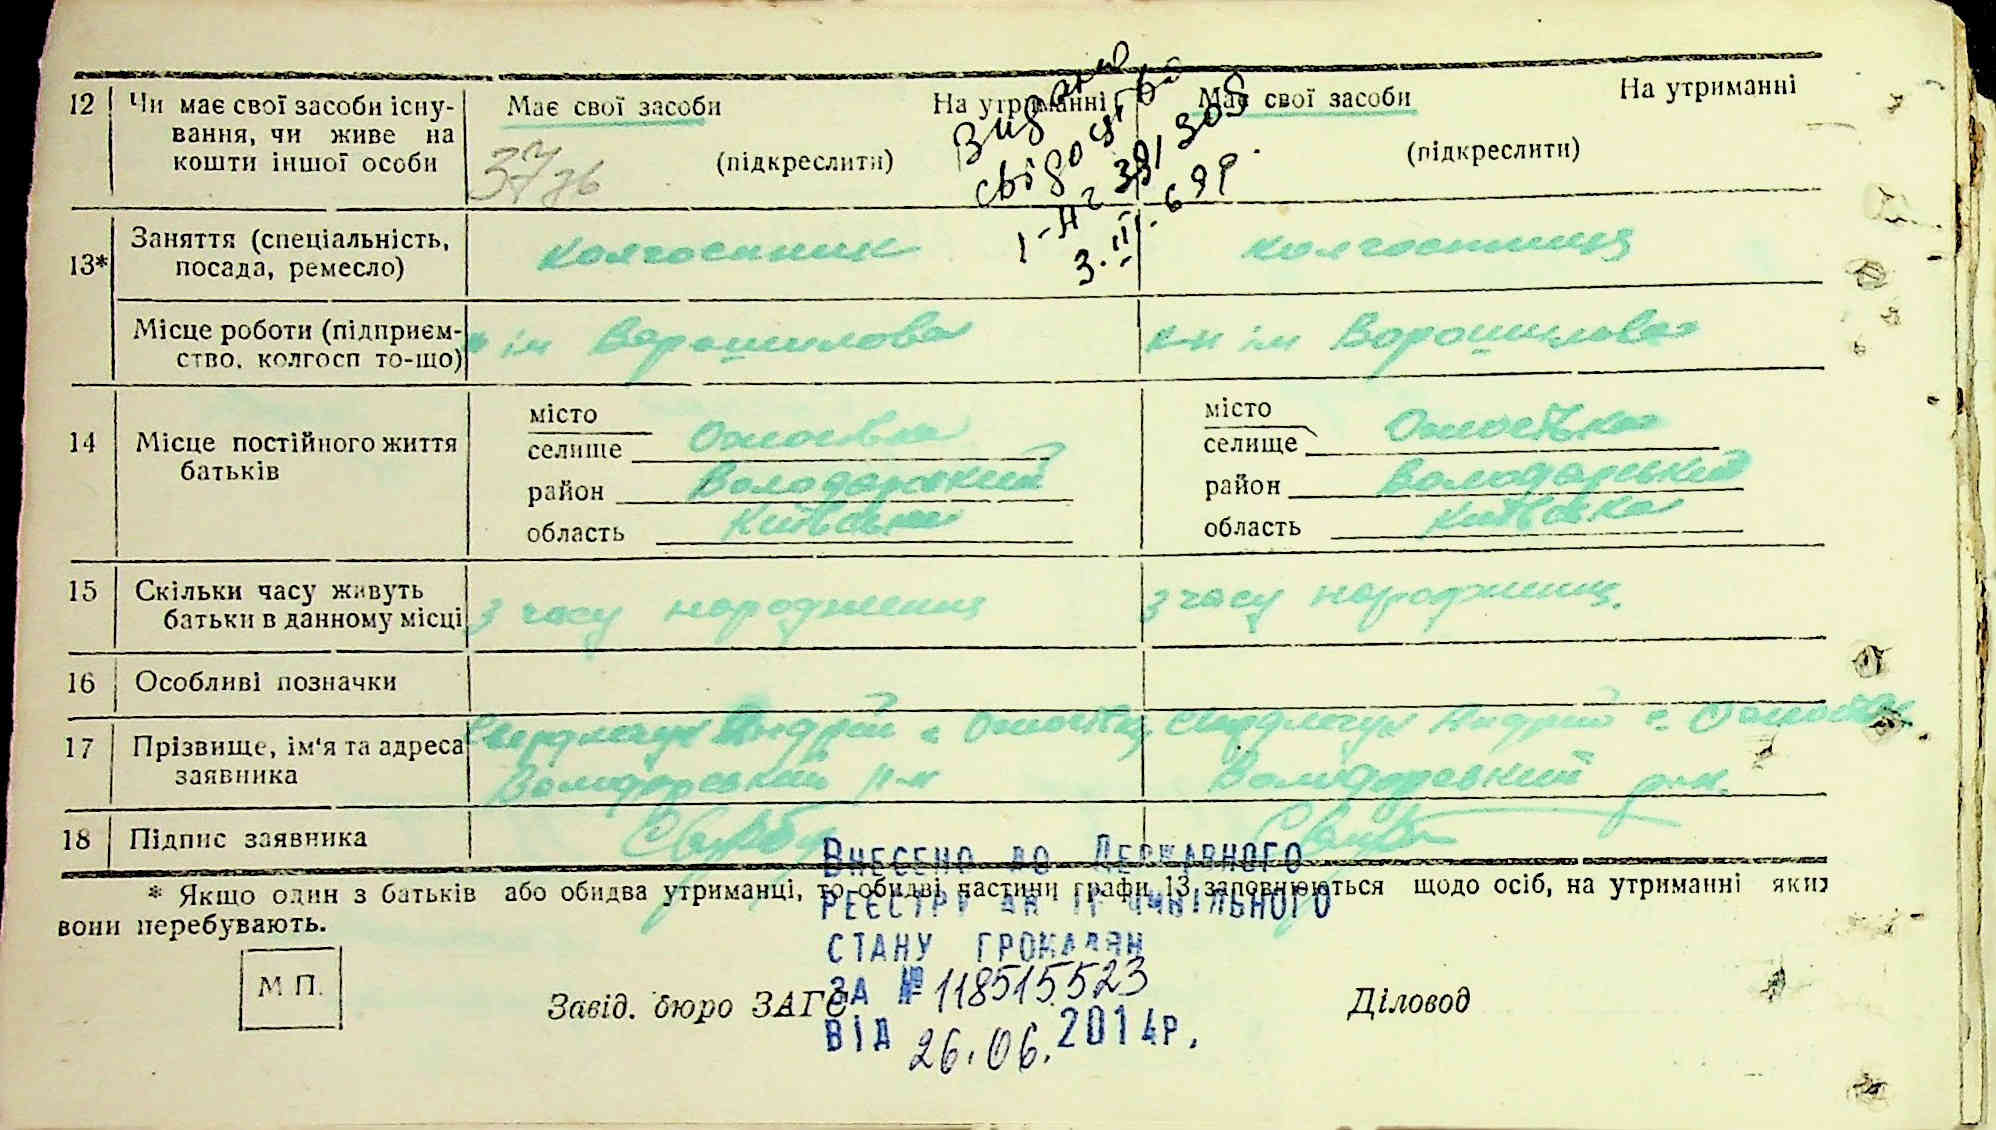 12 Чи має свої засоби існу- Має свої засоби На утриманні Має свої засоби На утриманні
вання, чи живе на
кошти іншої особи (підкреслити) (підкреслити)
37
Видано
свідоцтво
І-НГ 391305
3.ІІІ.69р.
13* Заняття (спеціальність, колгоспник колгоспниця
посада, ремесло)
Місце роботи (підприєм- ім Ворошилова к-п ім Ворошилова
ство, колгосп то-що)
14 Місце постійного життя
батьків
місто місто
селище селище
район Володарський район Володарський
область Київська область Київська
15 Скільки часу живуть з часу народження з часу народження
батьки в данному місці
16 Особливі позначки
17 Прізвище, ім'я та адреса Андрій с. Андрій с.
заявника Володарський р-н Володарський р-н.
18 Підпис заявника
* Якщо один з батьків або обидва утриманці, то обидві частини графи 13 заповнюються щодо осіб, на утриманні яких
вони перебувають.
ВНЕСЕНО ДО ДЕРЖАВНОГО
РЕЄСТРУ АКТІВ ЦИВІЛЬНОГО
СТАНУ ГРОМАДЯН
ЗА № 118515523
ВІД 26.06.2014Р.
М П.
Завід. бюро ЗАГС Діловод